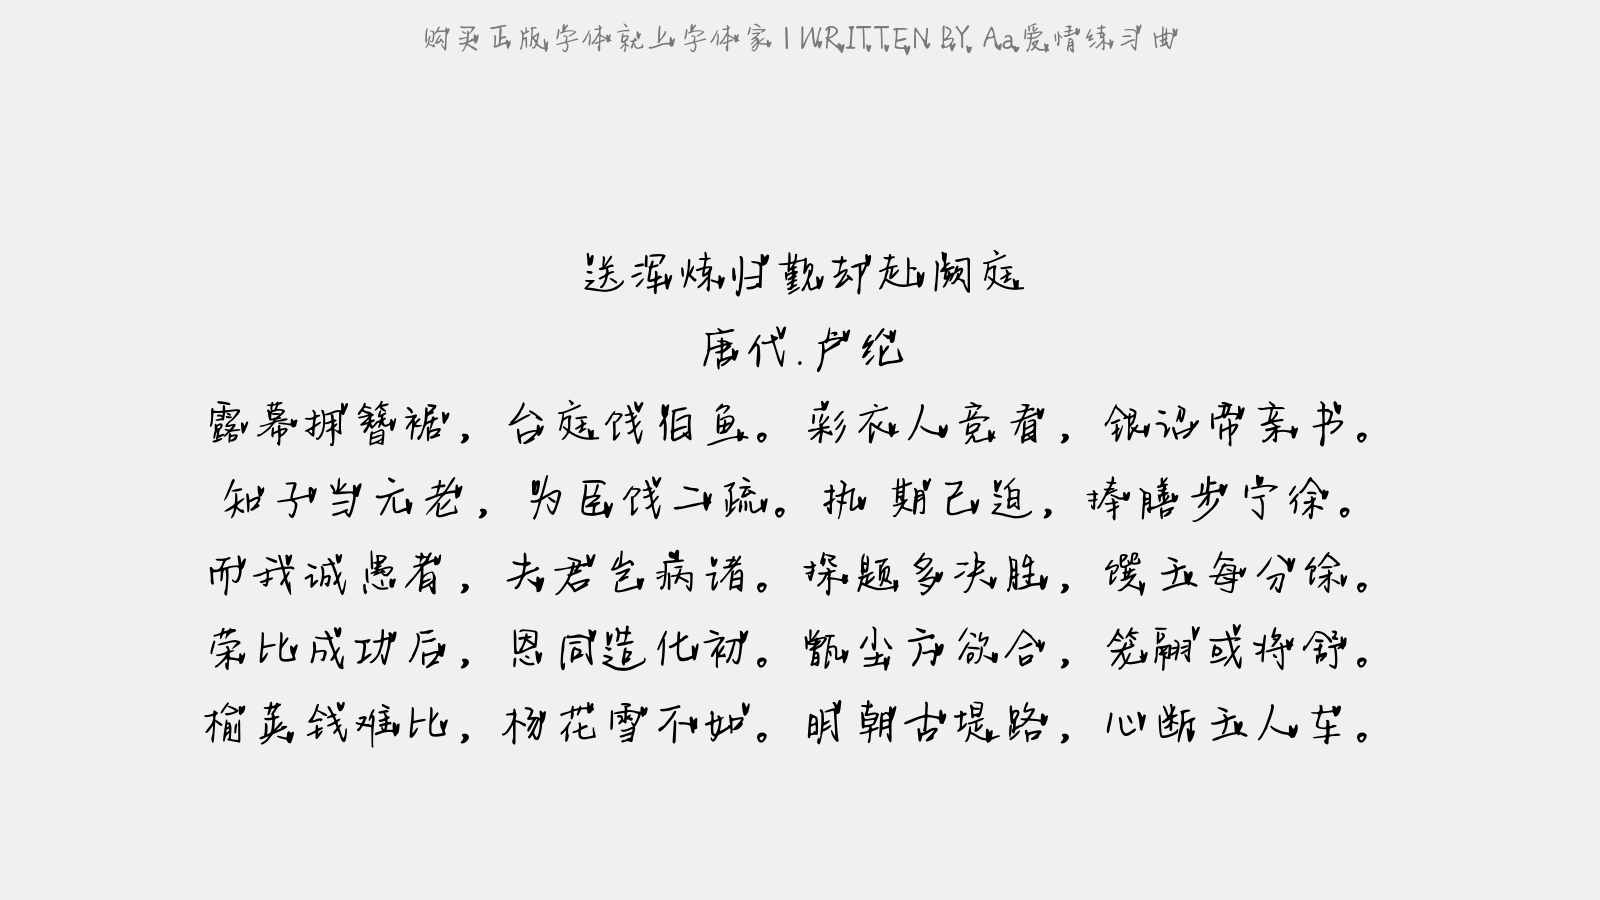 购买正版字体就上字体家 | WRITTEN BY Aa爱情练习曲
送浑炼归觐却赴阙庭
唐代.卢纶
露幕拥簪裾，台庭饯伯鱼。彩衣人竞看，银诏帝亲书。
知子当元老，为臣饯二疏。执 期已迫，捧膳步宁徐。
而我诚愚者，夫君岂病诸。探题多决胜，馔玉每分馀。
荣比成功后，恩同造化初。甑尘方欲合，笼翮或将舒。
榆荚钱难比，杨花雪不如。明朝古堤路，心断玉人车。